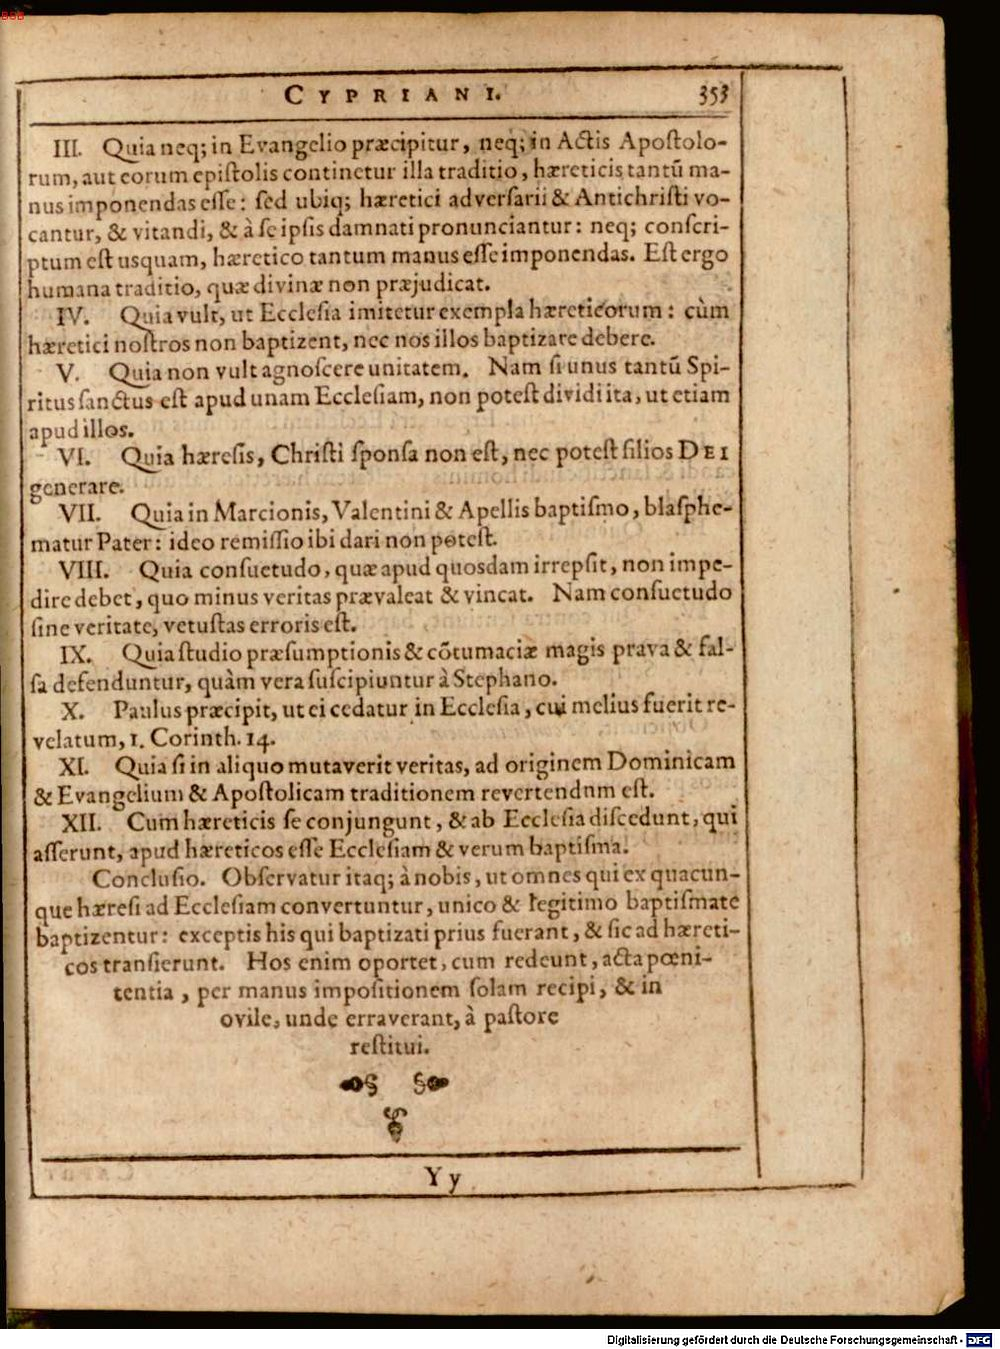 BSB
CYPRIANI. 353
III. Quia neq; in Evangelio præcipitur, neq; in Actis Apostolo-
rum, aut eorum epistolis continetur illa traditio, hæreticis tantũ ma-
nus imponendas esse: sed ubiq; hæretici adversarii & Antichristi vo-
cantur, & vitandi, & à se ipsis damnati pronunciantur: neq; conscri-
ptum est usquam, hæretico tantum manus esse imponendas. Est ergo
humana traditio, quæ divinæ non præjudicat.
IV. Quia vult, ut Ecclesia imitetur exempla hæreticorum: cùm
hæretici nostros non baptizent, nec nos illos baptizare debere.
V. Quia non vult agnoscere unitatem. Nam si unus tantũ Spi-
ritus sanctus est apud unam Ecclesiam, non potest dividi ita, ut etiam
apud illos.
VI. Quia hæresis, Christi sponsa non est, nec potest filios DEI
generare.
VII. Quia in Marcionis, Valentini & Apellis baptismo, blasphe-
matur Pater: ideo remissio ibi dari non potest.
VIII. Quia consuetudo, quæ apud quosdam irrepsit, non impe-
dire debet, quo minus veritas prævaleat & vincat. Nam consuetudo
sine veritate, vetustas erroris est.
IX. Quia studio præsumptionis & cõtumaciæ magis prava & fal-
sa defenduntur, quàm vera suscipiuntur à Stephano.
X. Paulus præcipit, ut ei cedatur in Ecclesia, cui melius fuerit re-
velatum, 1. Corinth. 14.
XI. Quia si in aliquo mutaverit veritas, ad originem Dominicam
& Evangelium & Apostolicam traditionem revertendnm est.
XII. Cum hæreticis se conjungunt, & ab Ecclesia discedunt, qui
asserunt, apud hæreticos esse Ecclesiam & verum baptisma.
Conclusio. Observatur itaq; à nobis, ut omnes qui ex quacun-
que hæresi ad Ecclesiam convertuntur, unico & legitimo baptismate
baptizentur: exceptis his qui baptizati prius fuerant, & sic ad hæreti-
cos transierunt. Hos enim oportet, cum redeunt, acta pœni-
tentia, per manus impositionem solam recipi, & in
ovile, unde erraverant, à pastore
restitui.
Yy
Digitalisierung gefördert durch die Deutsche Forschungsgemeinschaft - DFG